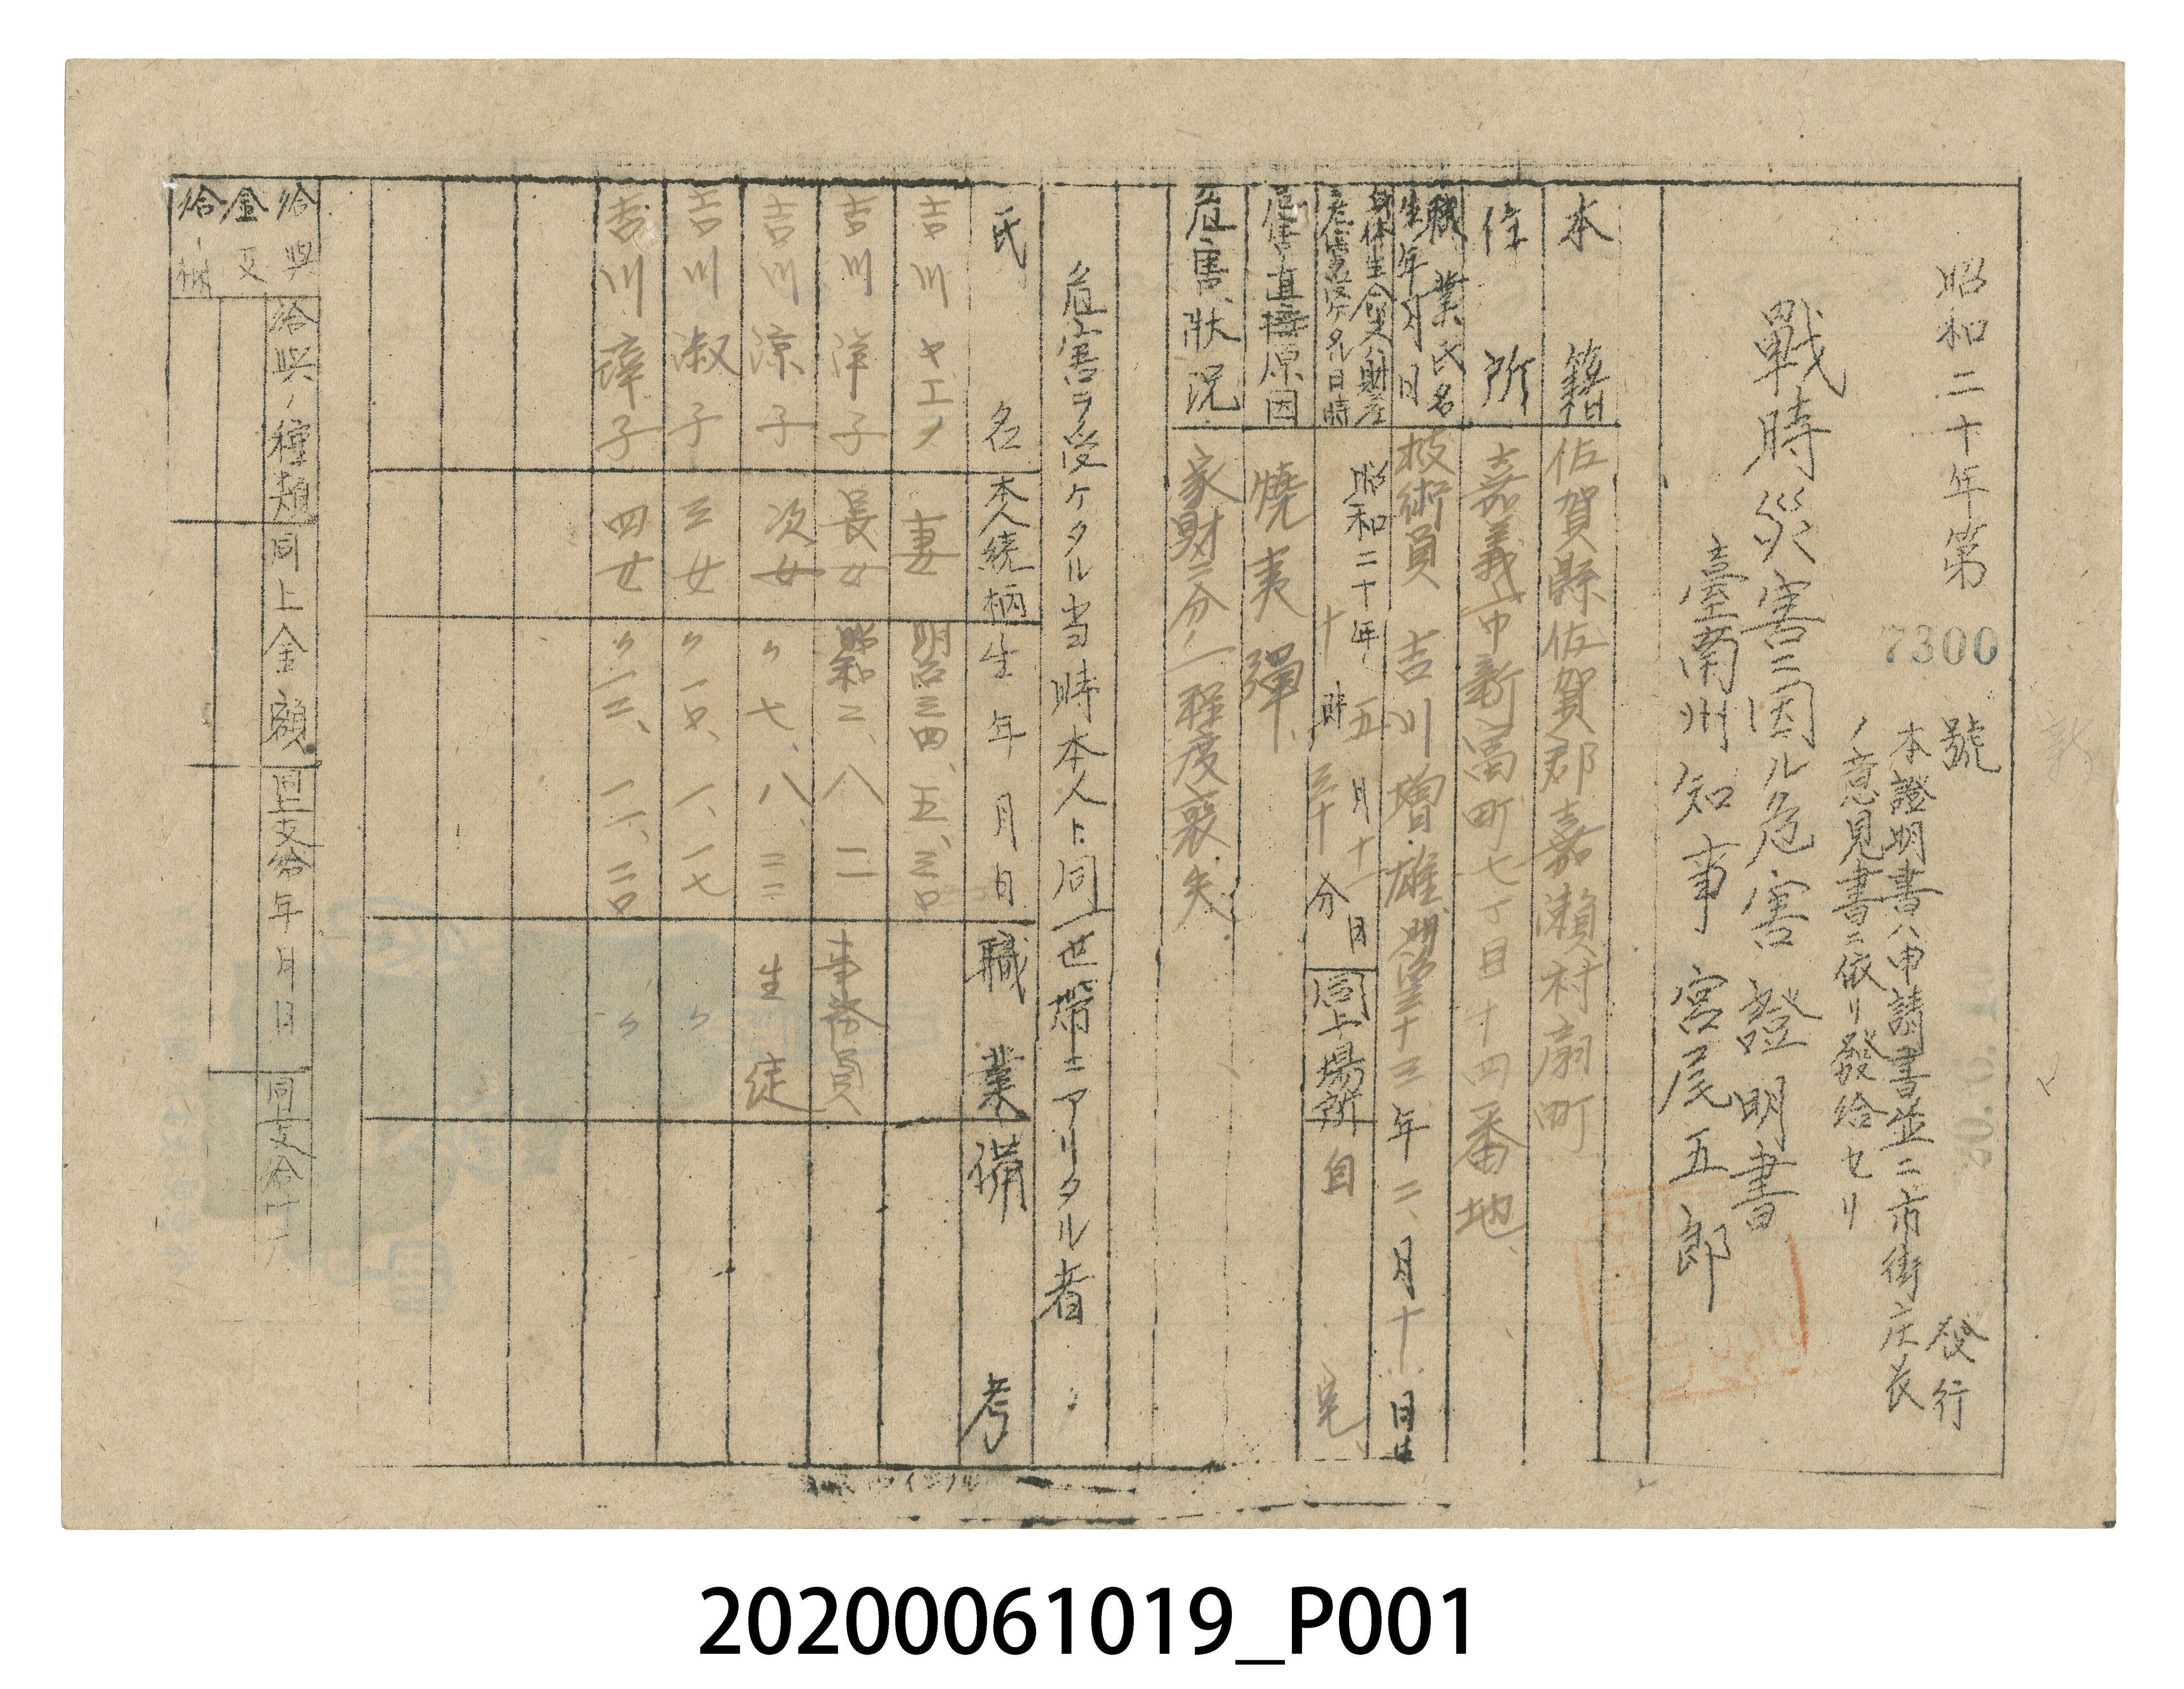 昭和二十年第 7300 號 發行
本證明書ハ申請書並ニ市街庄長
ノ意見書ニ依リ發給セリ
戰時災害ニ因ル危害證明書
臺南州知事 宮尾五郎
本籍 佐賀縣佐賀郡嘉瀬村扇町
住所 嘉義市新富町七丁目十四番地
職業氏名 生年月日 技術員 吉川 雄 明治三十三年二月十日生
身体生命又ハ財産
危害ヲ受ケタル日時 昭和二十年五月十二日 十時 分 同上場所 自宅
危害直接原因 燒夷彈
危害狀況 家財三分ノ一程度喪失
危害ヲ受ケタル当時本人ト同一世帶ニアリタル者
氏名 本人続柄 生年月日 職業 備考
吉川ヤエノ 妻 明治三四、五、三〇
吉川洋子 長女 昭和二、八、二 事務員
吉川涼子 次女 〃七、八、二三 生徒
吉川淑子 三女 〃一〇、一、一七 〃
吉川 子 四女 〃一三、一一、二〇 〃
給與ノ種類 同上金額 同上支給年月日 同上支給
給與金
又 給
20200061019_P001